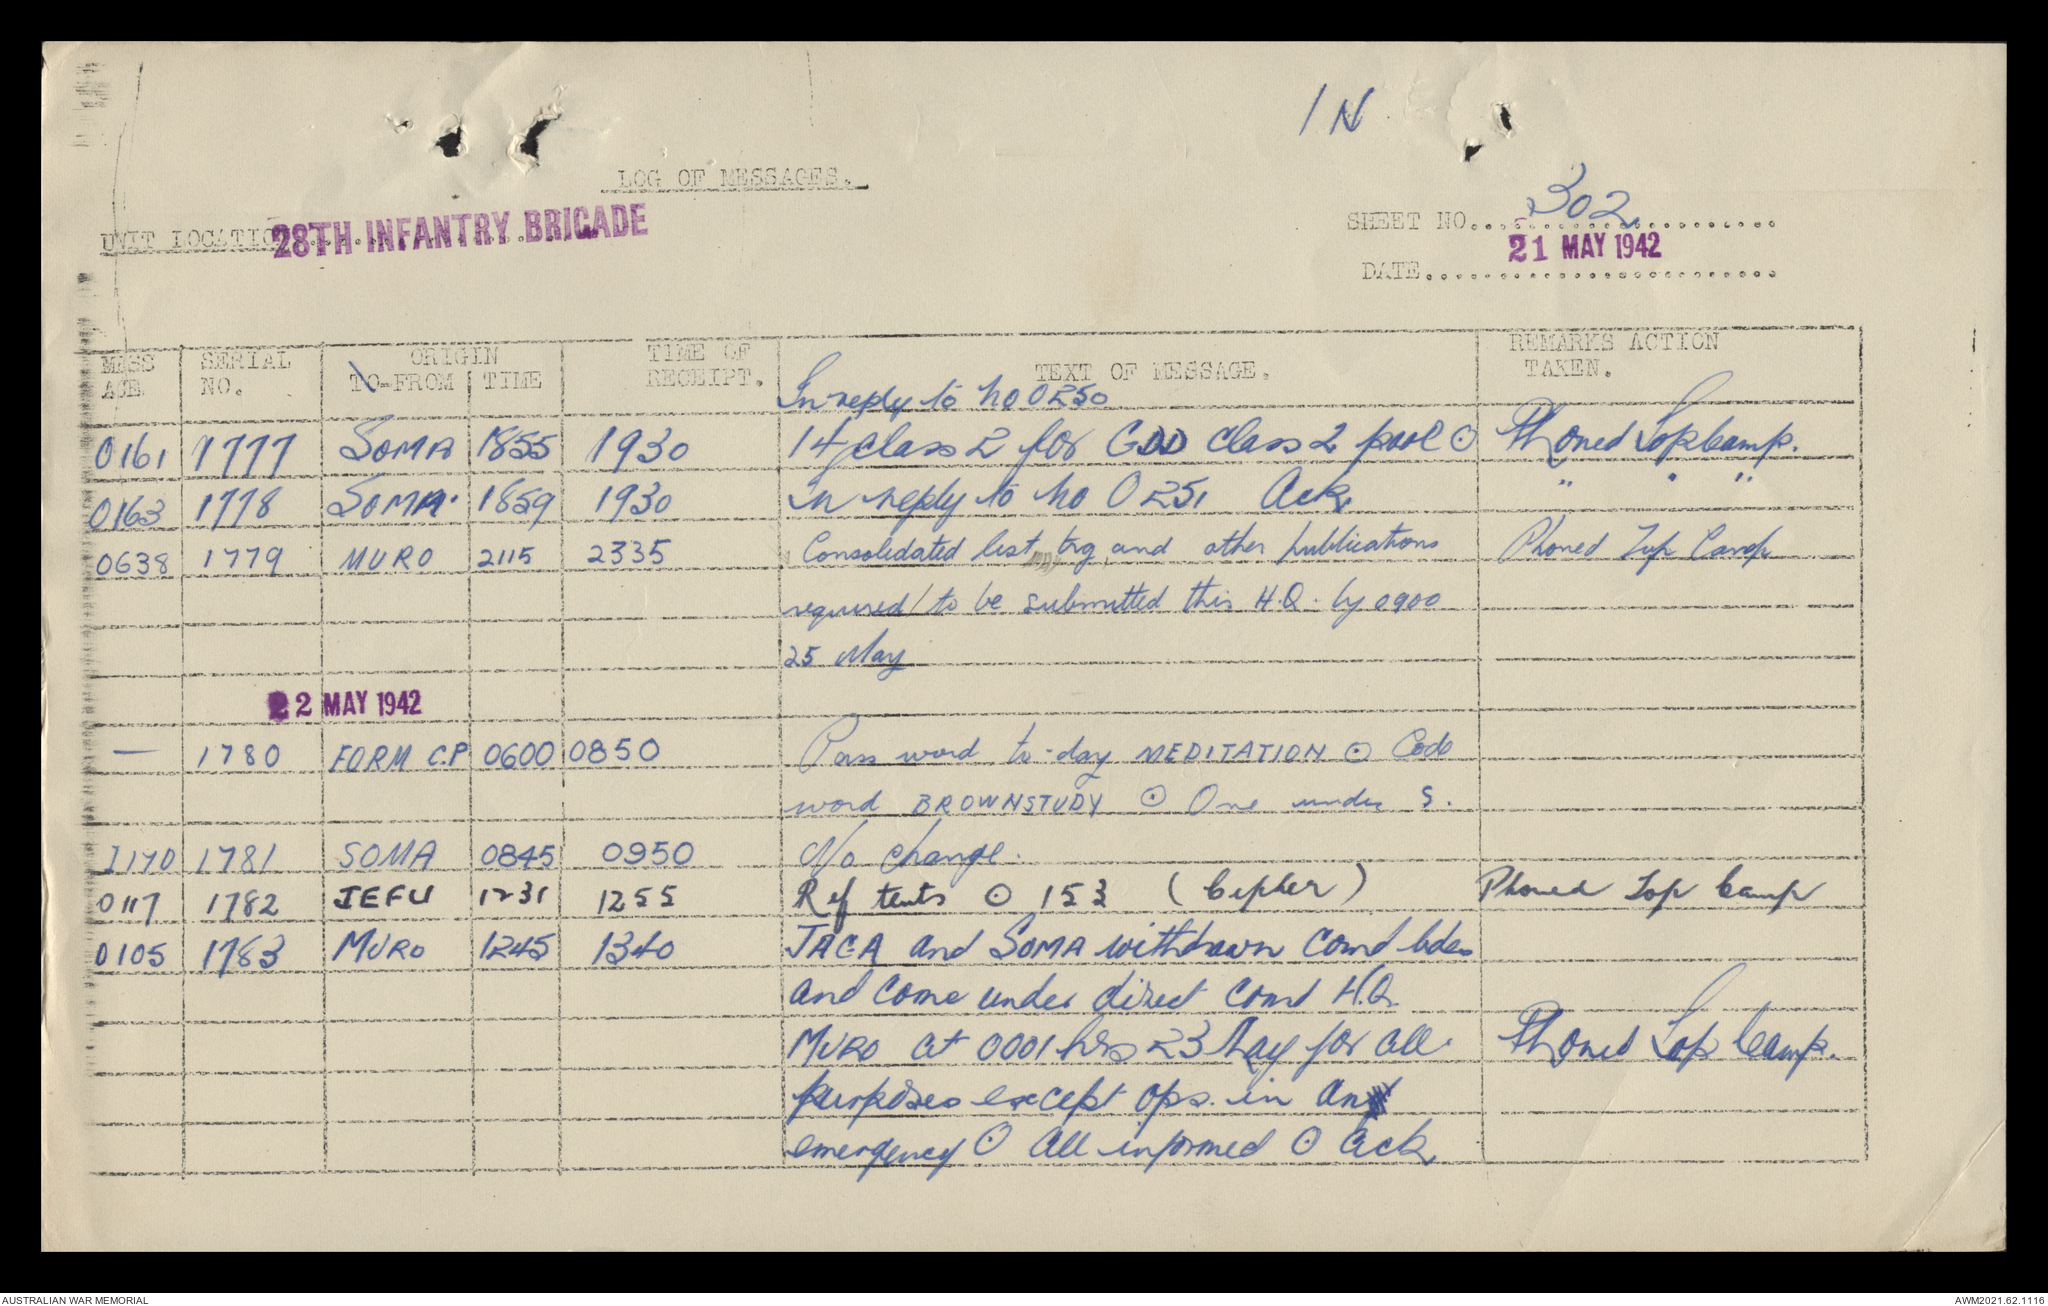 IN
LOG OF MESSAGES.
UNIT LOCATION 28TH INFANTRY BRIGADE
SHEET NO. 302
DATE 21 MAY 1942
MESS AGE. SERIAL NO. ORIGIN TO-FROM TIME TIME OF RECEIPT. TEXT OF MESSAGE. REMARKS ACTION TAKEN.
In reply to no O250
0161 1777 SOMA 1855 1930 14 class 2 for GDD class 2 pool ⊙ Phoned Top Camp.
0163 1778 SOMA. 1859 1930 In reply to no O251 Ack " " "
0638 1779 MURO 2115 2335 Consolidated list trg and other publications Phoned Top Camp
required / to be submitted this H.Q. by 0900
25 May
22 MAY 1942
— 1780 FORM C.P 0600 0850 Pass word to-day MEDITATION ⊙ Code
word BROWNSTUDY ⊙ One under S.
I170 1781 SOMA 0845 0950 No change.
0117 1782 JEFU 1231 1255 Ref tents ⊙ 153 (Cipher) Phoned Top Camp
0105 1783 MURO 1245 1340 JACA and SOMA withdrawn Comd bdes
and come under direct Comd H.Q.
MURO at 0001 hrs 23 May for all Phoned Top Camp.
purposes except ops. in an
emergency ⊙ All informed ⊙ Ack
AUSTRALIAN WAR MEMORIAL
AWM2021.62.1116